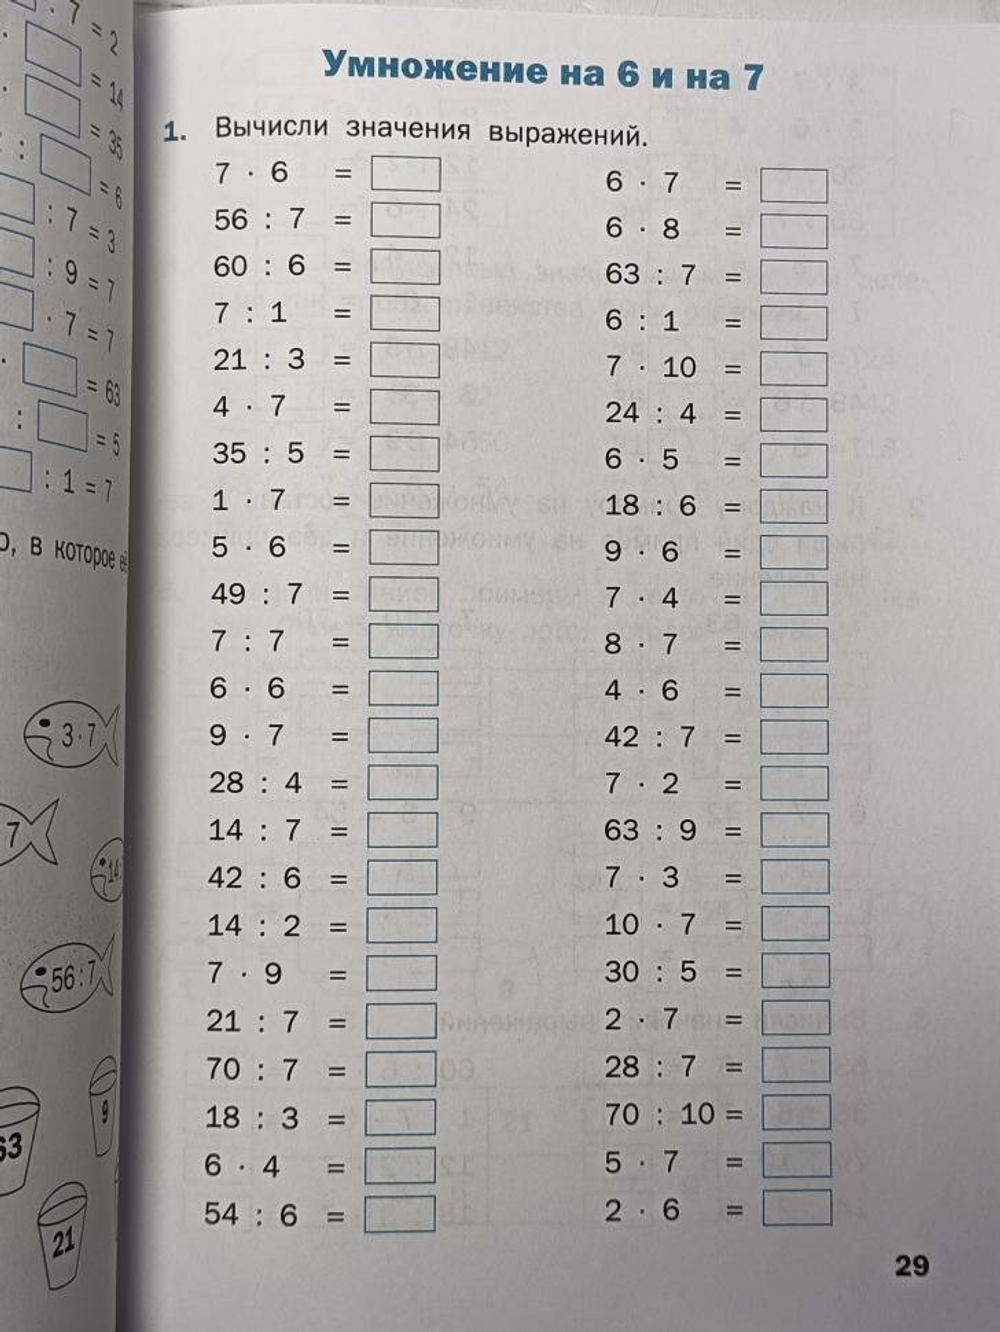 · 7 = 2
= 14
= 35
: = 6
: 7 = 3
: 9 = 7
· 7 = 7
· = 63
: = 5
: 1 = 7
О, в которое
3·7
7
14:
56:7
9
63
21
Умножение на 6 и на 7
1. Вычисли значения выражений.
7 · 6 =
56 : 7 =
60 : 6 =
7 : 1 =
21 : 3 =
4 · 7 =
35 : 5 =
1 · 7 =
5 · 6 =
49 : 7 =
7 : 7 =
6 · 6 =
9 · 7 =
28 : 4 =
14 : 7 =
42 : 6 =
14 : 2 =
7 · 9 =
21 : 7 =
70 : 7 =
18 : 3 =
6 · 4 =
54 : 6 =
6 · 7 =
6 · 8 =
63 : 7 =
6 : 1 =
7 · 10 =
24 : 4 =
6 · 5 =
18 : 6 =
9 · 6 =
7 · 4 =
8 · 7 =
4 · 6 =
42 : 7 =
7 · 2 =
63 : 9 =
7 · 3 =
10 · 7 =
30 : 5 =
2 · 7 =
28 : 7 =
70 : 10 =
5 · 7 =
2 · 6 =
29